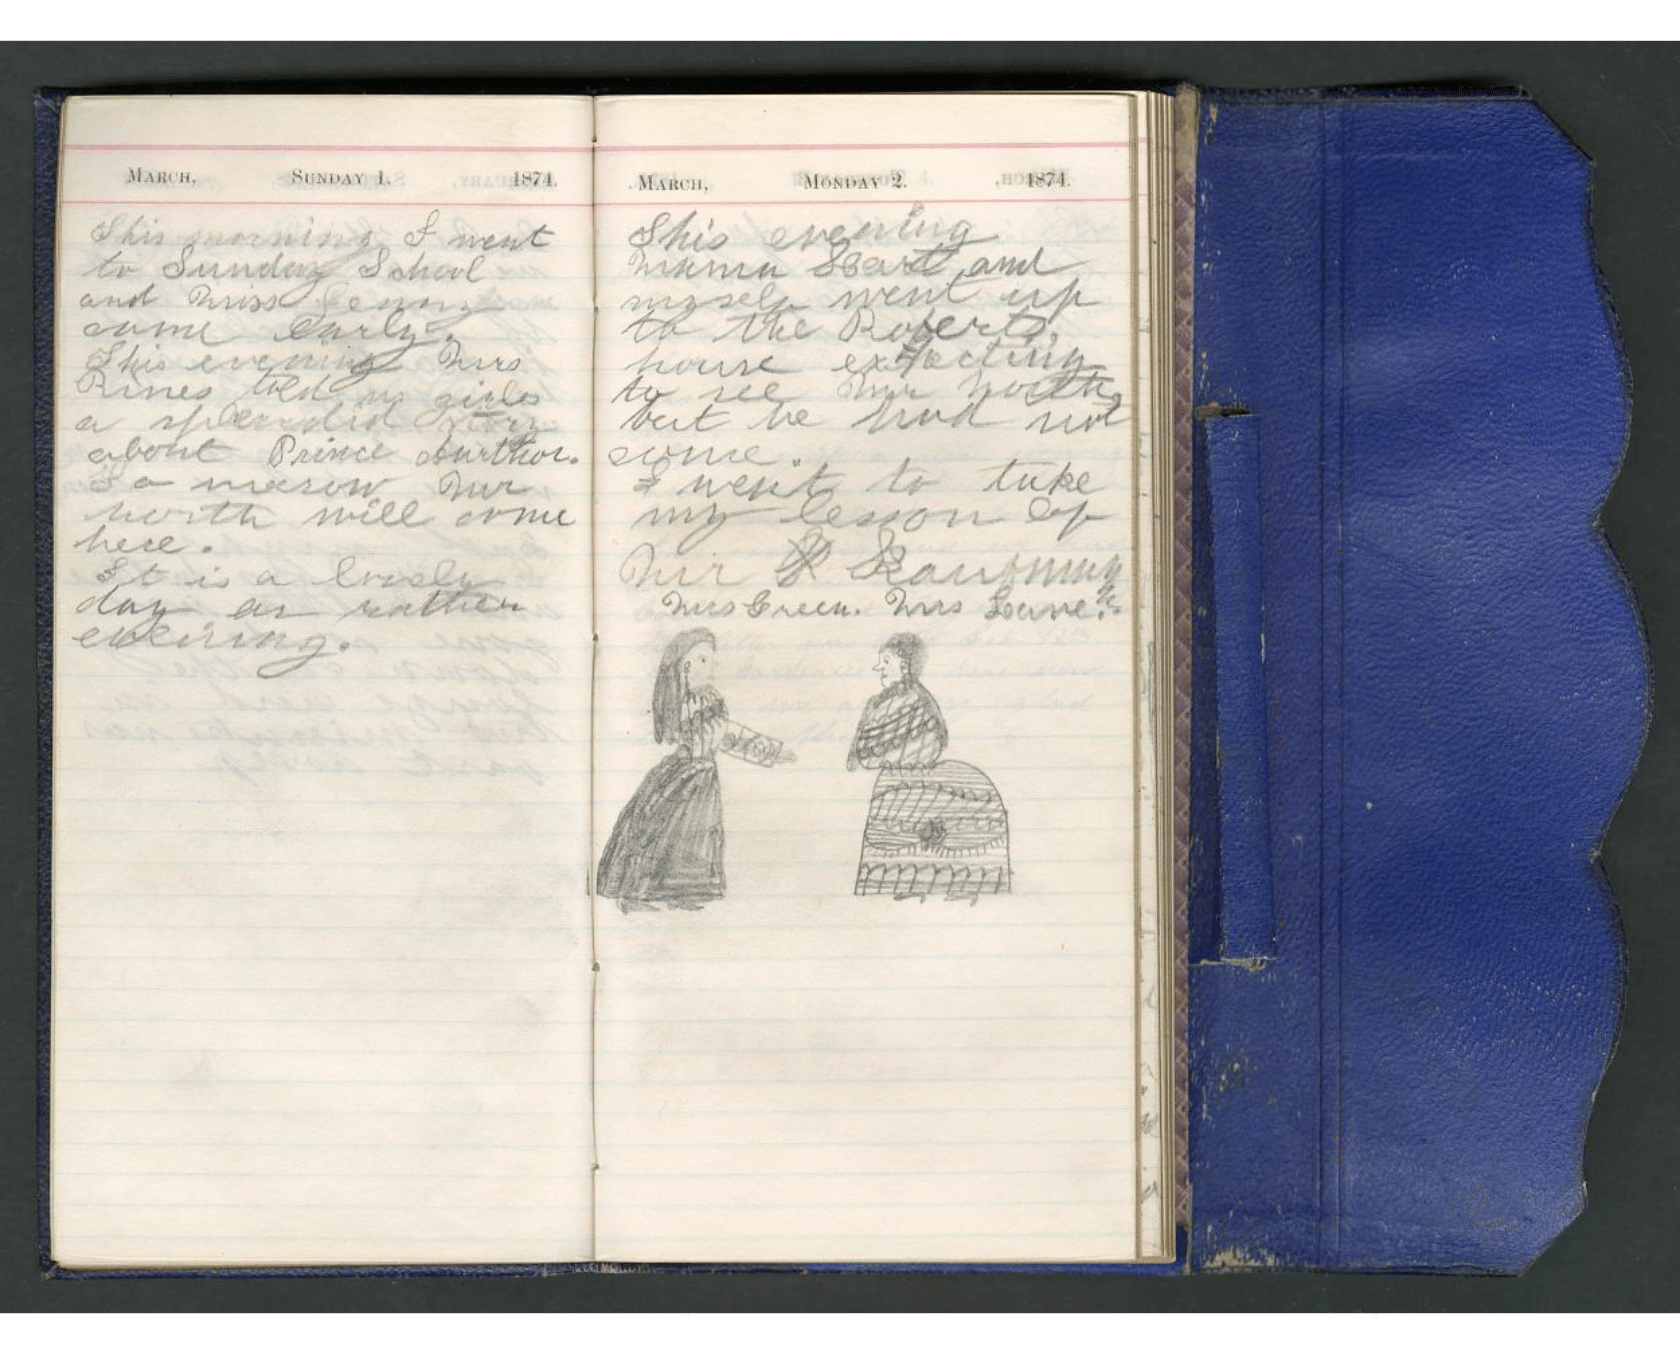 MARCH, SUNDAY 1. 1874.
This morning I went
to Sunday School
and Miss
came early.
This evening Mrs
Rines told us girls
a splendid story
about Prince Aurthor.
To a morow Mr
North will come
here.
It is a lovely
day or rather
evening.
MARCH, MONDAY 2. 1874.
This evening
Mama and
myself went up
to the Roberts
house expecting
to see Mr North,
but he had not
come.
I went to take
my lesson of
Mir
Mrs Green. Mrs